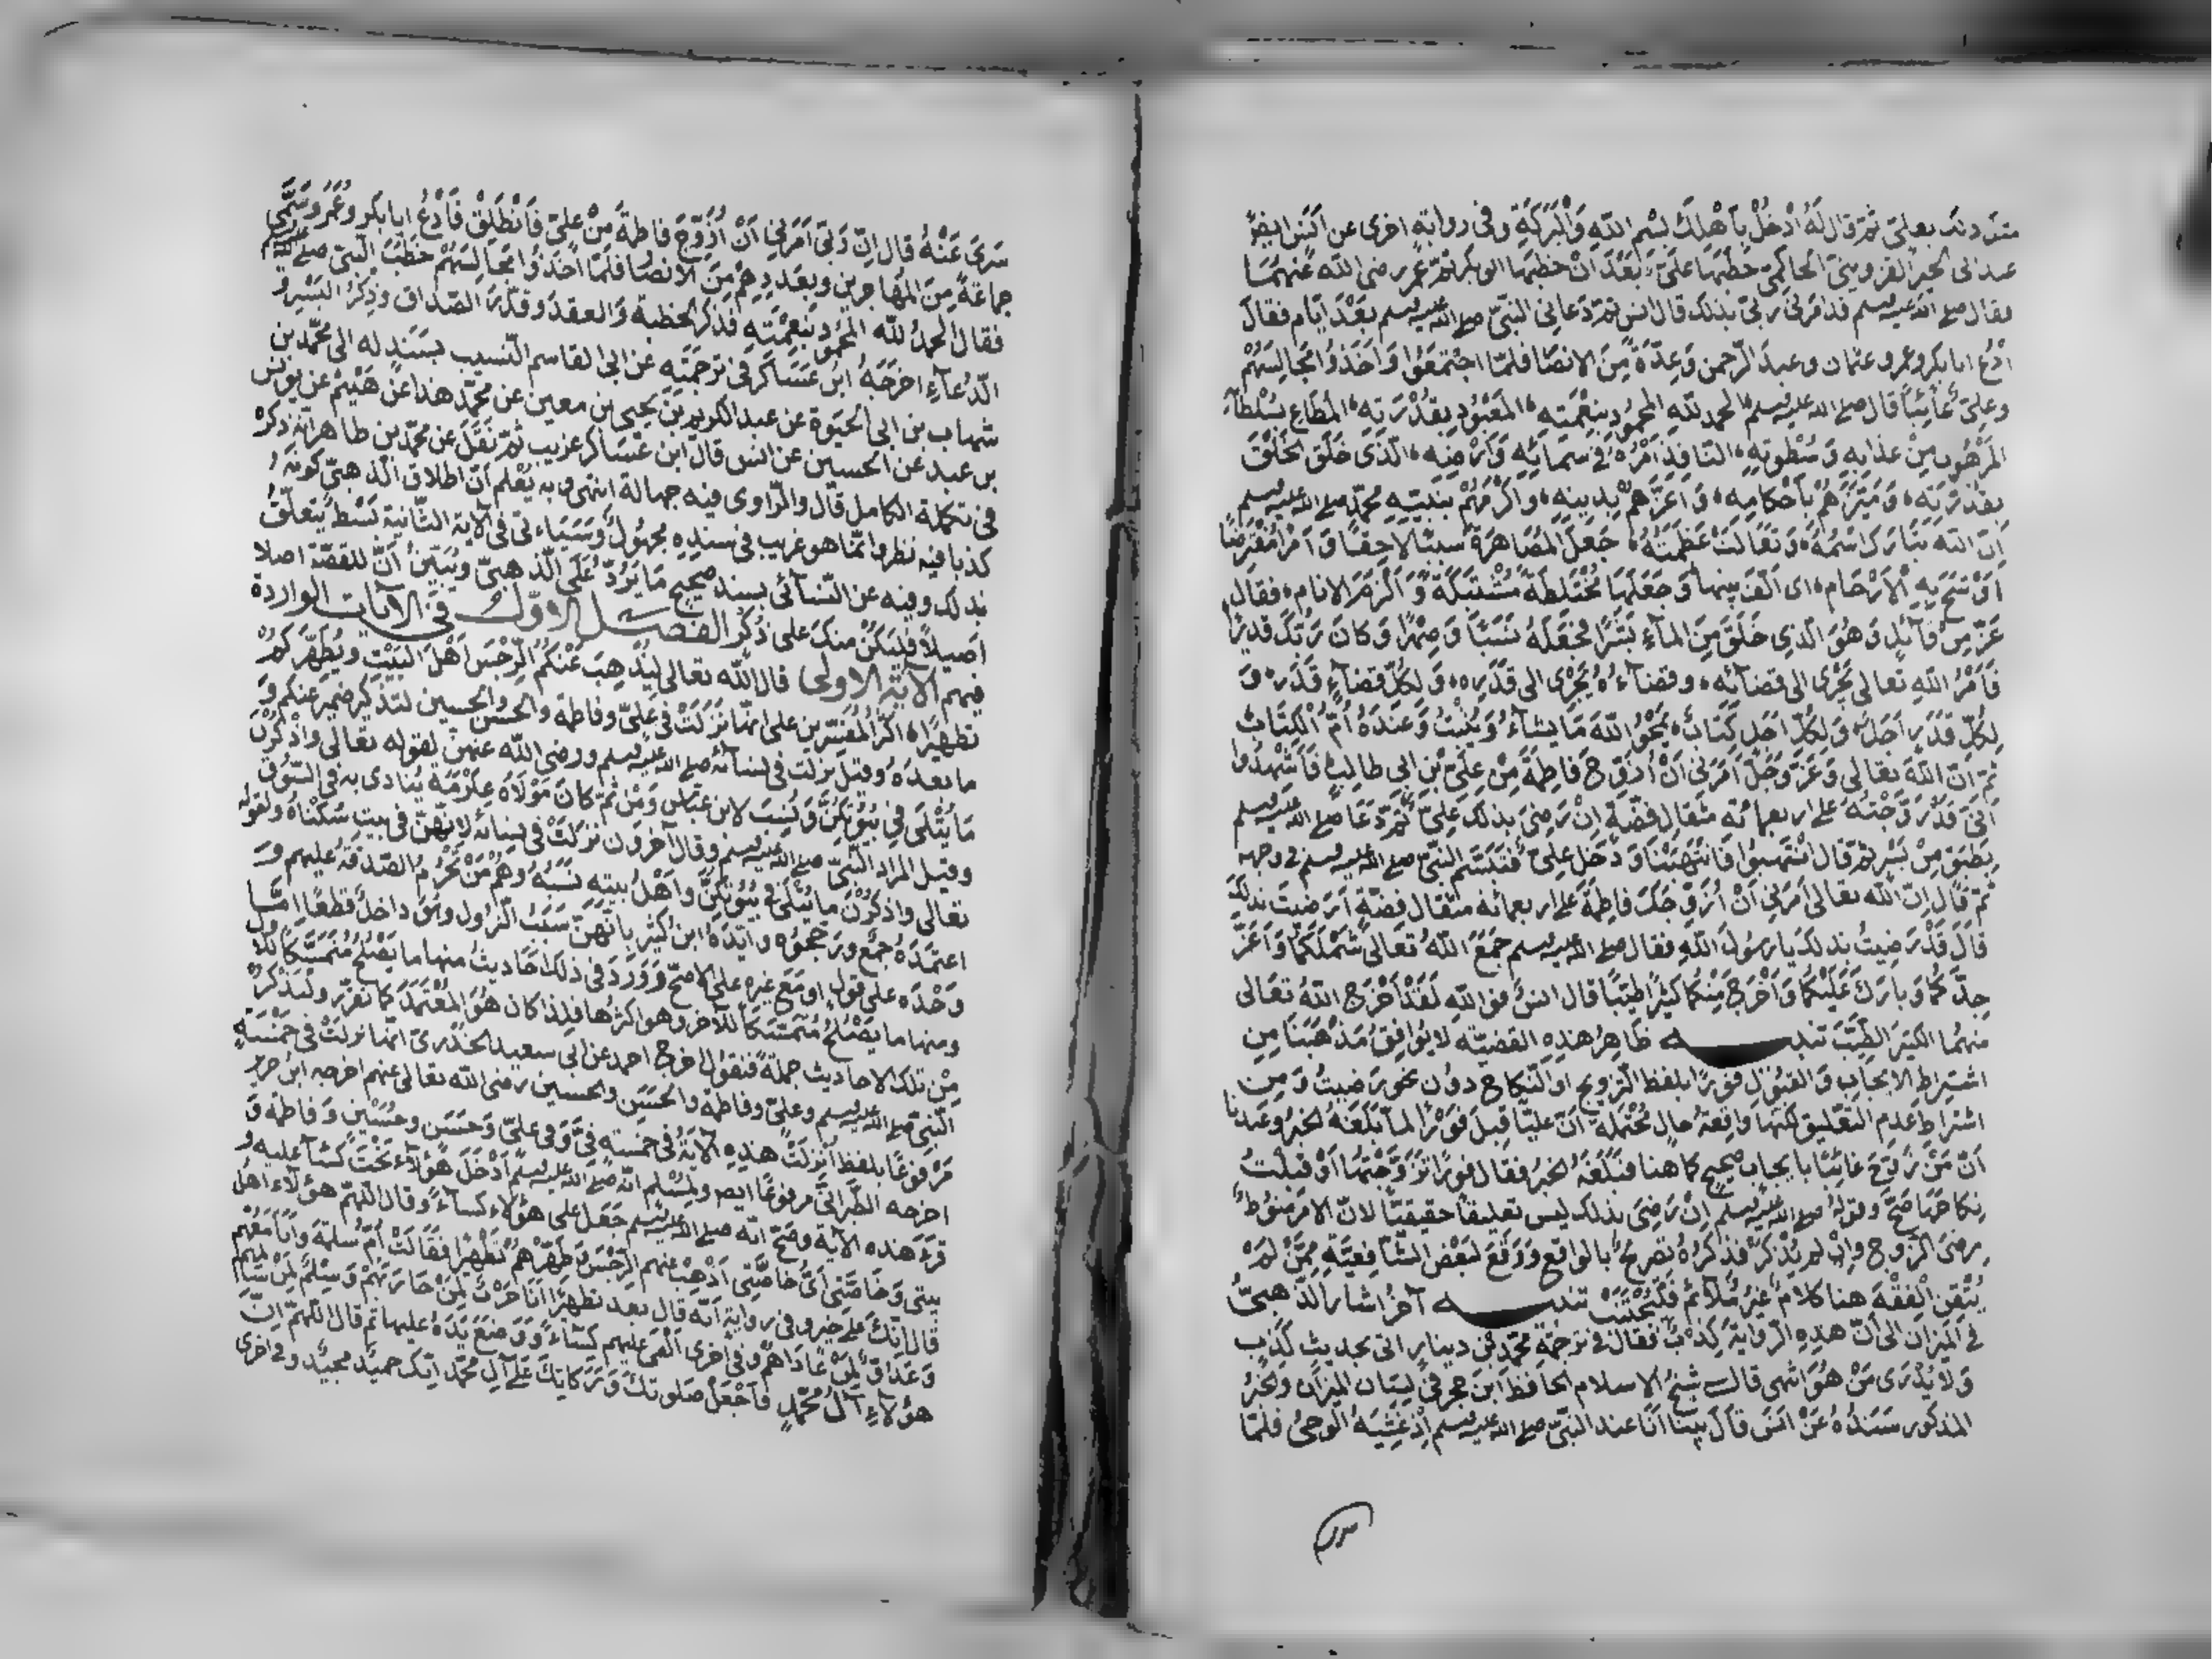 مثل ذلك بعلي ثم قال له ادخل باهلك بسم الله والبركة وفي رواية اخرى عن انس ايضا
عند ابى الخير القزويني الحاكمي خطبها علي بعد ان خطبها ابو بكر ثم عمر رضى الله عنهما
فقال صلى الله عليه وسلم قد امرنى ربى بذلك قال انس ثم دعاني النبي صلى الله عليه وسلم بعد ايام فقال
ادع ابا بكر وعمر وعثمان وعبد الرحمن وعدة من الانصار فلما اجتمعوا واخذوا مجالسهم
وعلي غائبا قال صلى الله عليه وسلم الحمد لله المحمود بنعمته المعبود بقدرته المطاع بسلطانه
المرهوب من عذابه وسطوته النافذ امره في سمائه وارضه الذى خلق الخلق
بقدرته وميزهم باحكامه واعزهم بدينه واكرمهم بنبيه محمد صلى الله عليه وسلم
ان الله تبارك اسمه وتعالت عظمته جعل المصاهرة سببا لاحقا وامرا مفترضا
اوشج به الارحام اى الف بينها وجعلها مختلطة مشتبكة والزم الانام فقال
عز من قائل وهو الذى خلق من الماء بشرا فجعله نسبا وصهرا وكان ربك قديرا
فامر الله تعالى يجرى الى قضائه وقضاءه يجرى الى قدره ولكل قضاء قدر و
لكل قدر اجل ولكل اجل كتاب يمحو الله ما يشاء ويثبت وعنده ام الكتاب
ثم ان الله تعالى وعز وجل امرنى ان ازوج فاطمة من علي بن ابي طالب فاشهدوا
انى قد زوجته على اربعمائة مثقال فضة ان رضى بذلك علي ثم دعا صلى الله عليه وسلم
بطبق من بسر ثم قال انتهبوا فانتهبنا ودخل علي فتبسم النبي صلى الله عليه وسلم في وجهه
ثم قال ان الله تعالى امرني ان ازوجك فاطمة على اربعمائة مثقال فضة ارضيت بذلك
قال قد رضيت بذلك يا رسول الله فقال صلى الله عليه وسلم جمع الله تعالى شملكما واعز
جدكما وبارك عليكما واخرج منكما كثيرا طيبا قال انس فو الله لقد اخرج الله تعالى
منهما الكثير الطيب تنبيه ظاهر هذه القضية لا يوافق مذهبنا من
اشتراط الايجاب والقبول فورا بلفظ التزويج او النكاح دون نحو رضيت ومن
اشتراط عدم التعليق لكنها واقعة حال محتملة ان عليا قبل فورا لما بلغه الخبر وعندنا
ان من زوج غائبا بايجاب صحيح كما هنا فبلغه الخبر فقال فورا تزوجتها او قبلت
نكاحها صح وقوله صلى الله عليه وسلم ان رضى بذلك ليس تعليقا حقيقيا لان الامر منوط
برضى الزوج وان لم يذكر فذكره تصريح بالواقع ووقع لبعض الشافعية ممن لم
يتقن الفقه هنا كلام غير ملائم فليجتنب تنبيه آخر اشار الذهبي
في الميزان الى ان هذه الرواية كذب فقال في ترجمة محمد بن دينار اتى بحديث كذب
ولا يدرى من هو انتهى قال شيخ الاسلام الحافظ ابن حجر في لسان الميزان والخبر
المذكور سنده عن انس قال بينا انا عند النبي صلى الله عليه وسلم اذ غشيه الوحى فلما
سرى عنه قال ان ربى امرني ان ازوج فاطمة من علي فانطلق فادع ابا بكر وعمر وسمى
جماعة من المهاجرين وبعددهم من الانصار فلما اخذوا مجالسهم خطب النبي صلى الله عليه وسلم
فقال الحمد لله المحمود بنعمته فذكر الخطبة والعقد وقدر الصداق وذكر البسر و
الدعاء اخرجه ابن عساكر في ترجمته عن ابى القاسم النسيب بسند له الى محمد بن
شهاب بن ابي الحيوة عن عبد الكريم بن يحيى ابن معين عن محمد هذا عن هشيم عن يونس
بن عبيد عن الحسين عن انس قال ابن عساكر غريب ثم نقل عن محمد بن طاهر انه ذكره
في تكملة الكامل قال والراوى فيه جهالة انتهى وبه يعلم ان اطلاق الذهبي كونه
كذبا فيه نظر وانما هو غريب في سنده مجهول وسياءتى في الآية الثانية بسط يتعلق
بذلك وفيه عن النسائى بسند صحيح ما يرد على الذهبي ويبين ان للقصة اصلا
اصيلا فليكن منك على ذكر الفصل الاول في الآيات الواردة
فيهم الآية الاولى قال الله تعالى ليذهب عنكم الرجس اهل البيت ويطهركم
تطهيرا اكثر المفسرين على انها نزلت في علي وفاطمة والحسن والحسين لتذكير ضمير عنكم و
ما بعده وقيل نزلت في نسائه صلى الله عليه وسلم ورضى الله عنهن لقوله تعالى واذكرن
ما يتلى في بيوتكن ونسب لابن عباس ومن ثم كان مولاه عكرمة ينادى به في السوق
وقيل المراد النبي صلى الله عليه وسلم وقال آخرون نزلت في نسائه لانهن في بيت سكناه ولقوله
تعالى واذكرن ما يتلى في بيوتكن واهل بيته نسبه وهم من تحرم الصدقة عليهم و
اعتمده جمع ورجحوه وايده ابن كثير بانهن سبب النزول وهو داخل قطعا اما
وحده على قول او مع غيره على الاصح وورد في ذلك احاديث منها ما يصلح متمسكا للاول
ومنها ما يصلح متمسكا للآخر وهو اكثرها فلذا كان هو المعتمد كما تقرر ولنذكر
من تلك الاحاديث جملة فنقول اخرج احمد عن ابى سعيد الخدرى انها نزلت في خمسة
النبي صلى الله عليه وسلم وعلي وفاطمة والحسن والحسين رضى الله تعالى عنهم اخرجه ابن جرير
مرفوعا بلفظ انزلت هذه الآية في خمسة في وفى علي وحسن وحسين وفاطمة و
اخرجه الطبرانى مرفوعا ايضا ولمسلم انه صلى الله عليه وسلم ادخل هؤلاء تحت كساء عليه و
قرء هذه الآية وصح انه صلى الله عليه وسلم جعل على هؤلاء كساء وقال اللهم هؤلاء اهل
بيتى وخاصتى اى خاصتى اذهب عنهم الرجس وطهرهم تطهيرا فقالت ام سلمة وانا معهم
قال انك على خير وفى رواية انه قال بعد تطهيرا انا حرب لمن حاربهم وسلم لمن سالمهم
وعدو لمن عاداهم وفى اخرى القى عليهم كساء ووضع يده عليها ثم قال اللهم ان
هؤلاء آل محمد فاجعل صلوتك وبركاتك على آل محمد انك حميد مجيد وفى اخرى